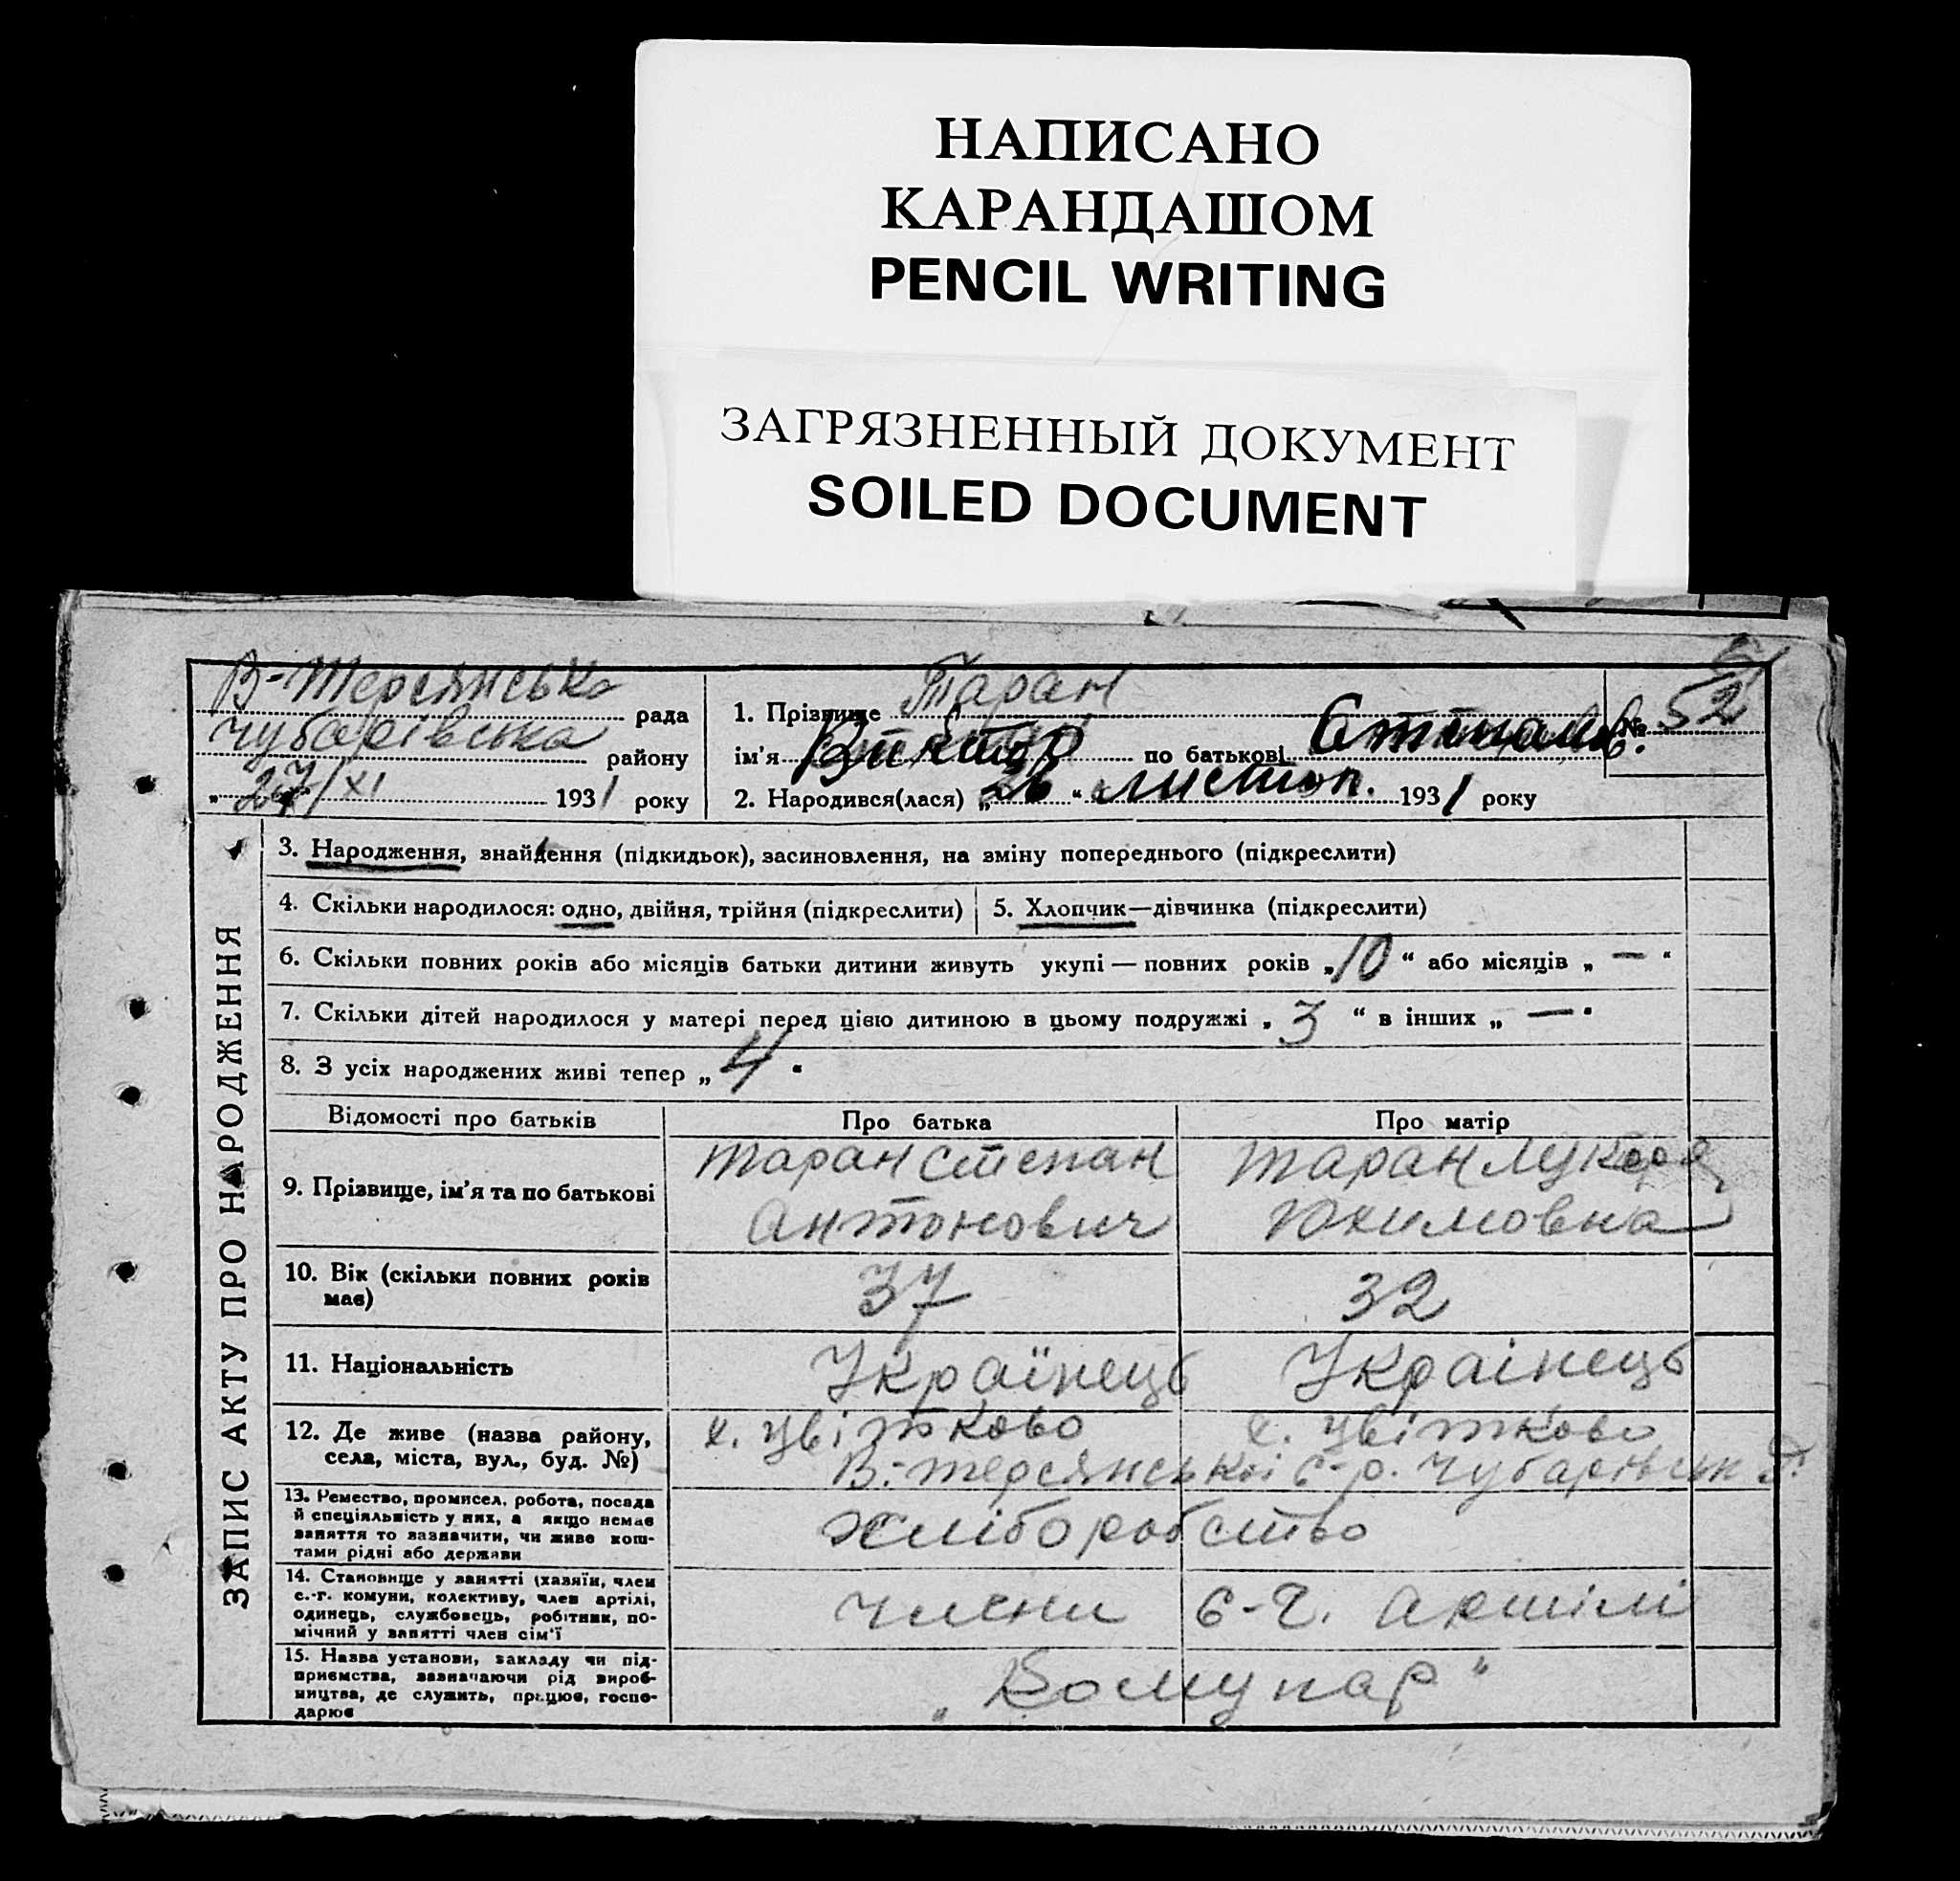 НАПИСАНО
КАРАНДАШОМ
PENCIL WRITING
ЗАГРЯЗНЕННЫЙ ДОКУМЕНТ
SOILED DOCUMENT
В-Терсянська рада
Чубарівська району
„27/XI 1931 року
1. Прізвище Таран
ім'я Виктор по батькові Степанов. № 52
2. Народився(лася) „26“ листоп. 1931 року
ЗАПИС АКТУ ПРО НАРОДЖЕННЯ
3. Народження, знайдення (підкидьок), засиновлення, на зміну попереднього (підкреслити)
4. Скільки народилося: одно, двійня, трійня (підкреслити) 5. Хлопчик—дівчинка (підкреслити)
6. Скільки повних років або місяців батьки дитини живуть укупі — повних років „10“ або місяців „—“
7. Скільки дітей народилося у матері перед цією дитиною в цьому подружжі „3“ в інших „—“
8. З усіх народжених живі тепер „4“
Відомості про батьків Про батька Про матір
9. Прізвище, ім'я та по батькові
Таран Степан
Антонович
Таран Лукера
Юхимовна
10. Вік (скільки повних років
має)
37 32
11. Національність Українець Украінець
12. Де живе (назва району,
села, міста, вул., буд. №)
х. Цвітково х. Цвітково
В.-Терсянської с-р. Чубарівськ
13. Ремество, промисел, робота, посада
й спеціяльність у них, а якщо немає
заняття то зазначити, чи живе кош-
тами рідні або держави
Хліборобство
14. Становище у занятті (хазяїн, член
с.-г. комуни, колективу, член артілі,
одинець, службовець, робітник, по-
мічний у занятті член сім'ї
Члени С-Г. Артілі
15. Назва установи, закладу чи під-
приємства, зазначаючи рід вироб-
ництва, де служить, працює, госпо-
дарює
„Комунар"